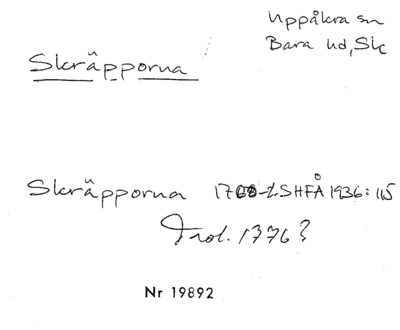 Uppåkra sn
Bara hd, Sk
Skräpporna
Skräpporna 1700-t. SHFÅ 1936:115
Trol. 1776?
Nr 19892